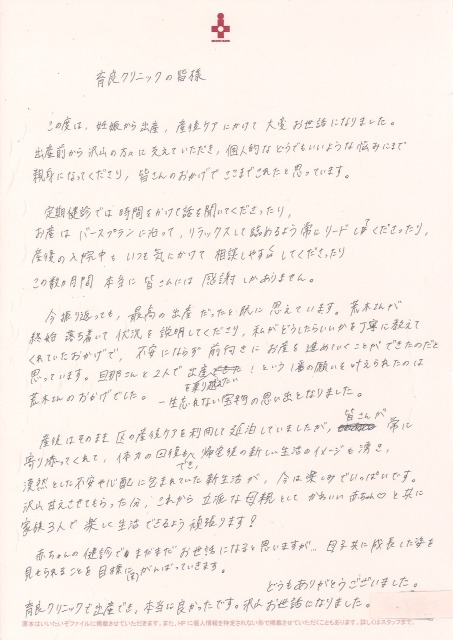 育良クリニックの皆様
この度は、妊娠から出産、産後ケアにかけて大変お世話になりました。
出産前から沢山の方々に支えていただき、個人的などうでもいいような悩みにまで
親身になってくださり、皆さんのおかげでここまでこれたと思っています。
定期健診では時間をかけて話を聞いてくださったり、
お産はバースプランに沿って、リラックスして臨めるよう常にリードして下くださったり、
産後の入院中もいつも気にかけて相談しやすくしてくださったり
この数ヵ月間本当に皆さんには感謝しかありません。
今振り返っても、最高の出産だったと既に思えています。荒木さんが
終始落ち着いて状況を説明してくださり、私がどうしたらいいかを丁寧に教えて
くれていたおかげで、不安にならず前向きにお産を進めていくことができたのだと
思っています。旦那さんと2人で出産を乗り越えたい!という1番の願いを叶えられたのは
荒木さんのおかげでした。一生忘れない宝物の思い出となりました。
産後はそのまま区の産後ケアを利用して延泊していましたが、皆さんが常に
寄り添ってくれて、体力の回復ができ、帰宅後の新しい生活のイメージも湧き、
漠然とした不安や心配に包まれていた新生活が、今は楽しみでいっぱいです。
沢山甘えさせてもらった分、これから立派な母親としてかわいい赤ちゃん♡と共に
家族3人で楽しく生活できるよう頑張ります!
赤ちゃんの健診でまだまだお世話になると思いますが… 母子共に成長した姿を
見せられることを目標にがんばっていきます。
どうもありがとうございました。
育良クリニックで出産でき、本当に良かったです。沢山お世話になりました。
原本はいいたいぞファイルに掲載させていただきます。また、HPに個人情報を特定されない形で掲載させていただくこともあります。詳しくはスタッフまで。